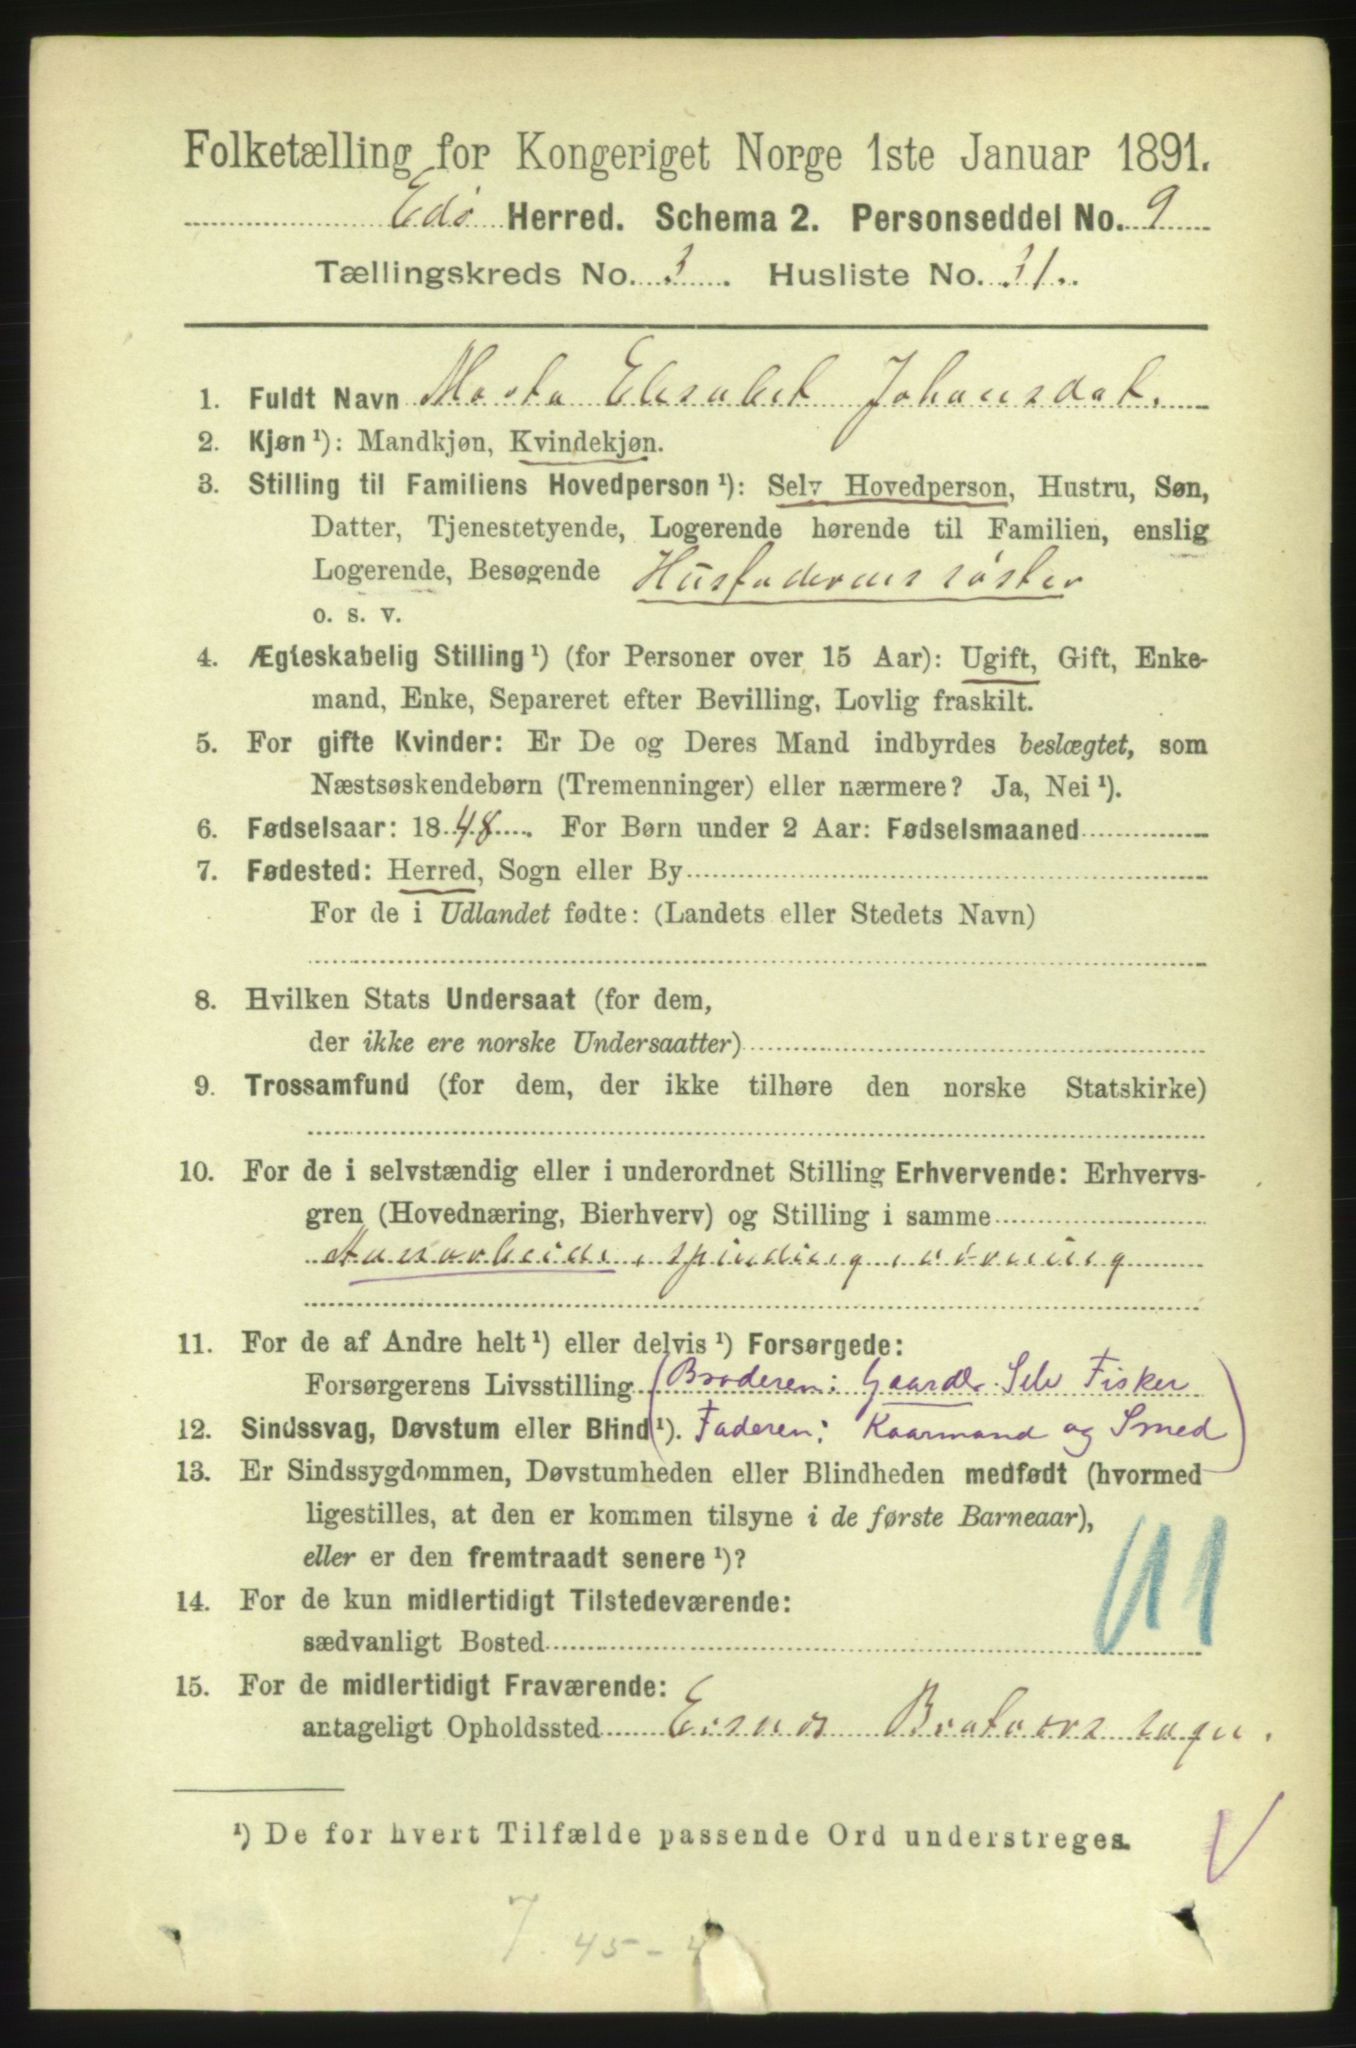 Folketælling for Kongeriget Norge 1ste Januar 1891.
Edø Herred. Schema 2. Personseddel No. 9
Tællingskreds No. 3. Husliste No. 31.
1. Fuldt Navn Marta Elisabet Johansdat.
2. Kjøn ¹): Mandkjøn, Kvindekjøn.
3. Stilling til Familiens Hovedperson ¹): Selv Hovedperson, Hustru, Søn,
Datter, Tjenestetyende, Logerende hørende til Familien, enslig
Logerende, Besøgende Husfaderens søster
o. s. v.
4. Ægteskabelig Stilling ¹) (for Personer over 15 Aar): Ugift, Gift, Enke-
mand, Enke, Separeret efter Bevilling, Lovlig fraskilt.
5. For gifte Kvinder: Er De og Deres Mand indbyrdes beslægtet, som
Næstsøskendebørn (Tremenninger) eller nærmere? Ja, Nei ¹).
6. Fødselsaar: 1848. For Børn under 2 Aar: Fødselsmaaned
7. Fødested: Herred, Sogn eller By
For de i Udlandet fødte: (Landets eller Stedets Navn)
8. Hvilken Stats Undersaat (for dem,
der ikke ere norske Undersaatter)
9. Trossamfund (for dem, der ikke tilhøre den norske Statskirke)
10. For de i selvstændig eller i underordnet Stilling Erhvervende: Erhvervs-
gren (Hovednæring, Bierhverv) og Stilling i samme
spinding
11. For de af Andre helt ¹) eller delvis ¹) Forsørgede:
Forsørgerens Livsstilling (Broderen: Gaardbr. Selv Fisker
12. Sindssvag, Døvstum eller Blind ¹). Faderen: Kaarmand og Smed)
13. Er Sindssygdommen, Døvstumheden eller Blindheden medfødt (hvormed
ligestilles, at den er kommen tilsyne i de første Barneaar),
eller er den fremtraadt senere ¹)?
14. For de kun midlertidigt Tilstedeværende:
sædvanligt Bosted
15. For de midlertidigt Fraværende:
antageligt Opholdssted Bratværs sogn.
¹) De for hvert Tilfælde passende Ord understreges.
7. 45 -